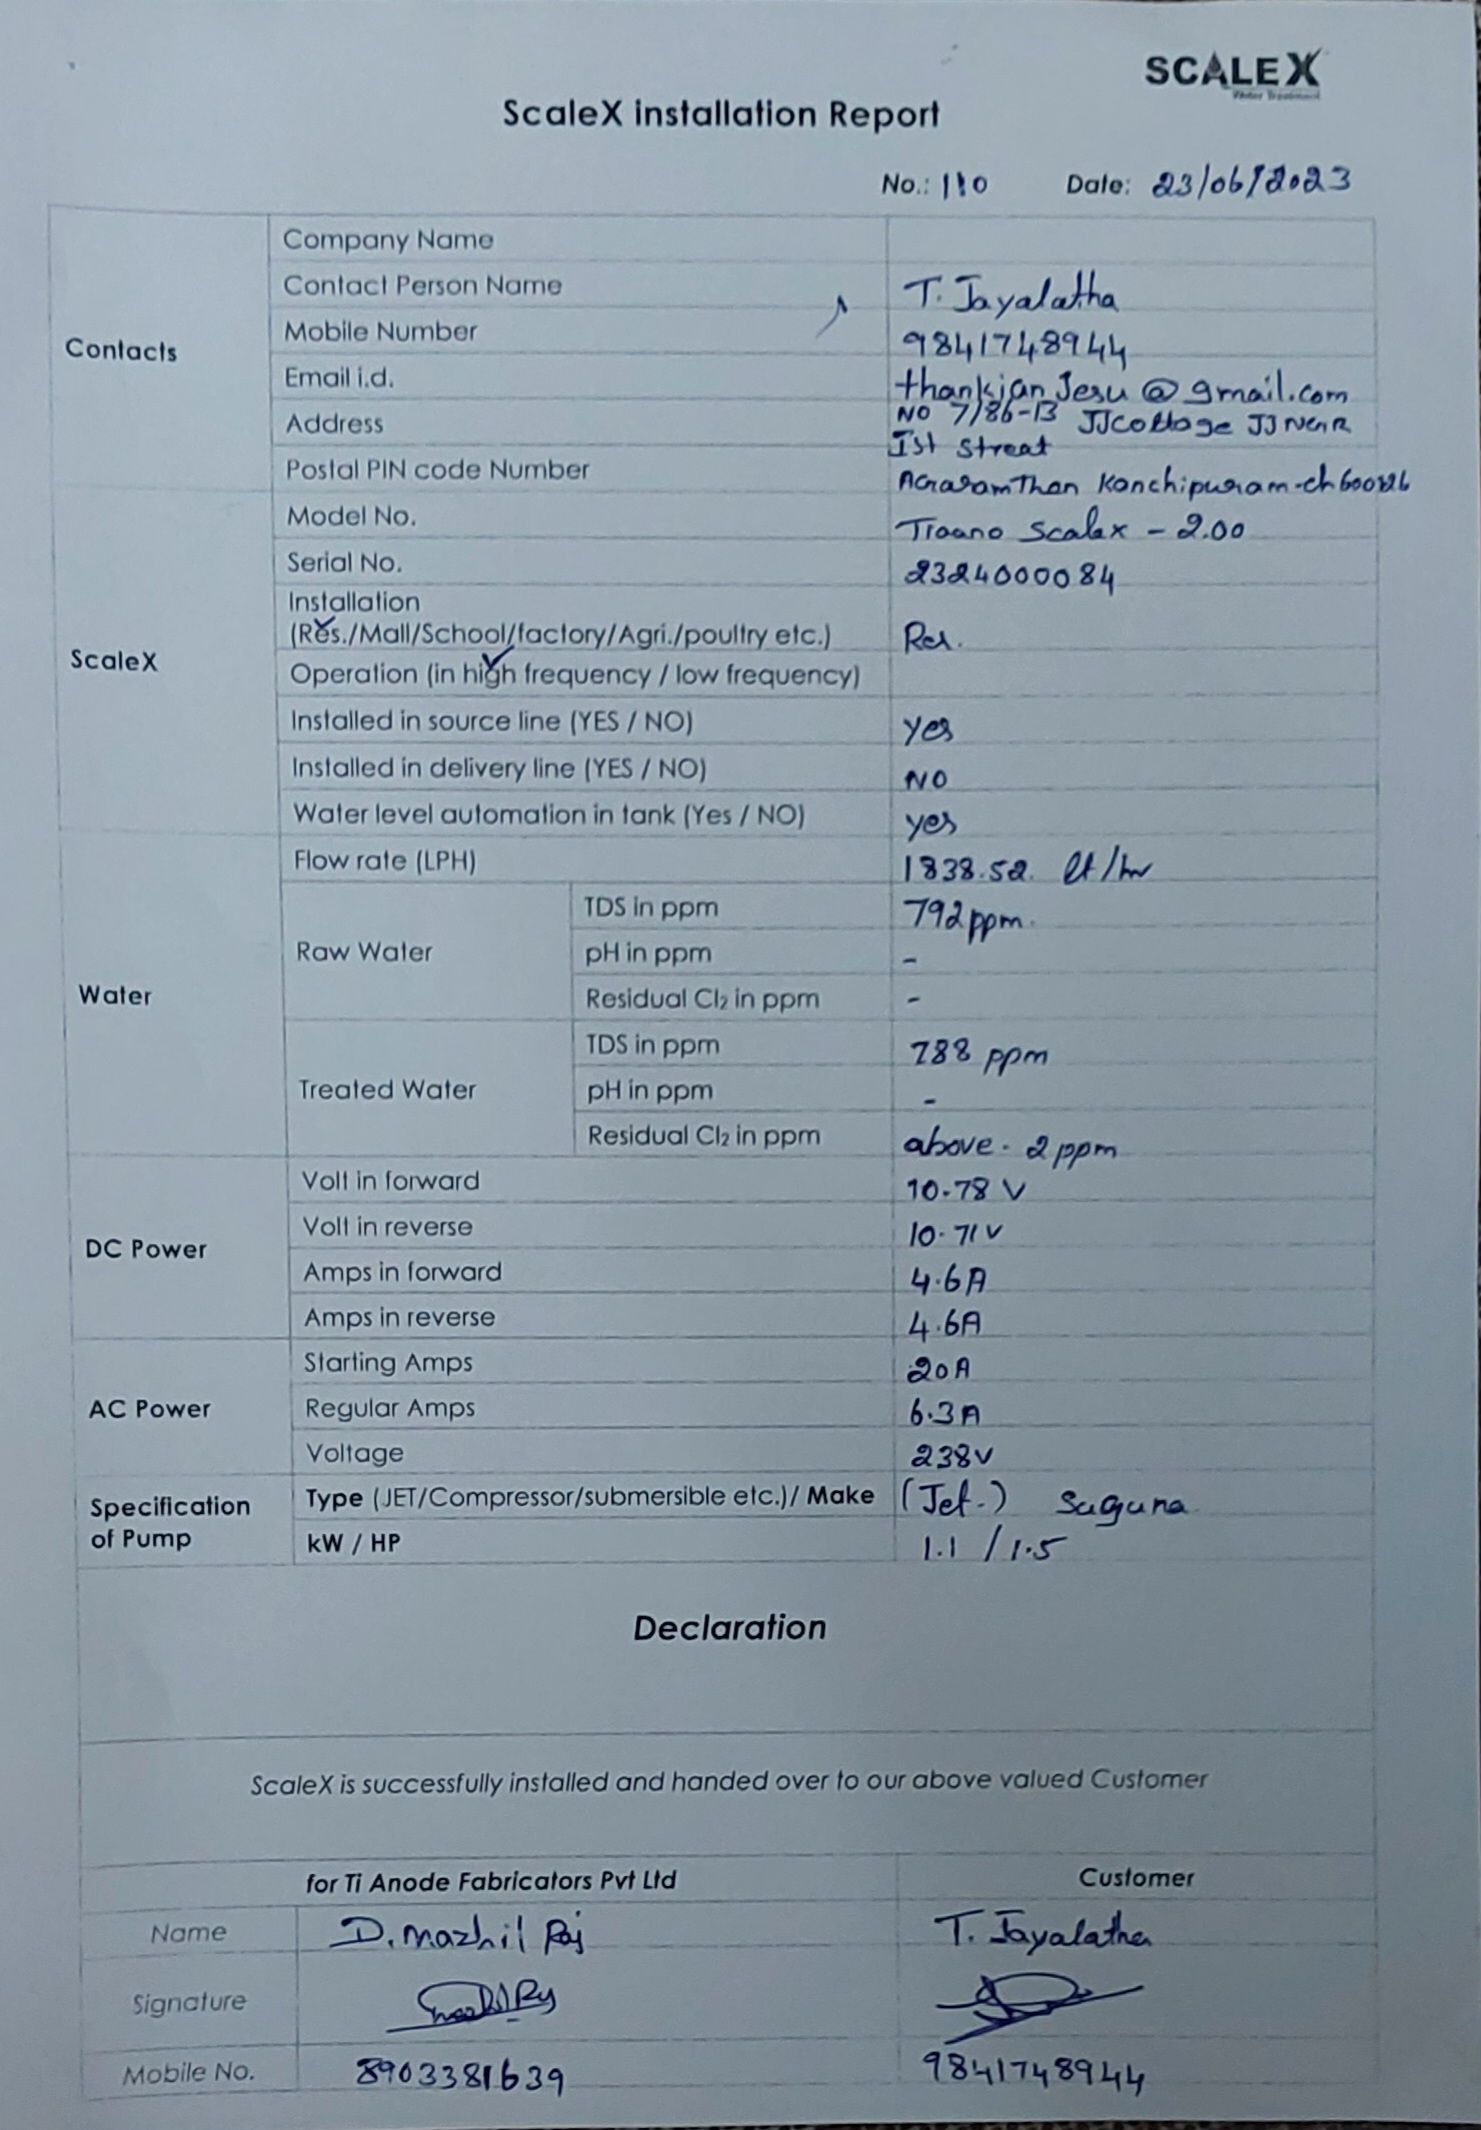 SCALEX
Water Treatment
ScaleX installation Report
No.: 110 Date: 23/06/2023
Contacts
Company Name
Contact Person Name T. Jayalatha
Mobile Number 9841748944
Email i.d. thankianJesu@gmail.com
Address NO 7/86-B JJCottage JJ Nagar
Ist Street
Postal PIN code Number Agaramthen Kanchipuram-ch
ScaleX
Model No. Scalex - 2.00
Serial No. 2324000084
Installation
(Res./Mall/School/factory/Agri./poultry etc.) Res.
Operation (in high frequency / low frequency)
Installed in source line (YES / NO) yes
Installed in delivery line (YES / NO) NO
Water level automation in tank (Yes / NO) yes
Water
Flow rate (LPH) 1838.52. lt/hr
Raw Water
TDS in ppm 792ppm.
pH in ppm -
Residual Cl2 in ppm -
Treated Water
TDS in ppm 788 ppm
pH in ppm -
Residual Cl2 in ppm above. 2 ppm
DC Power
Volt in forward 10.78 V
Volt in reverse 10.71V
Amps in forward 4.6A
Amps in reverse 4.6A
AC Power
Starting Amps 20A
Regular Amps 6.3A
Voltage 238V
Specification
of Pump
Type (JET/Compressor/submersible etc.)/ Make (Jet.) Suguna
kW / HP 1.1 / 1.5
Declaration
ScaleX is successfully installed and handed over to our above valued Customer
for Ti Anode Fabricators Pvt Ltd Customer
Name D. Mazhil Raj T. Jayalatha
Signature
Mobile No. 8903381639 9841748944